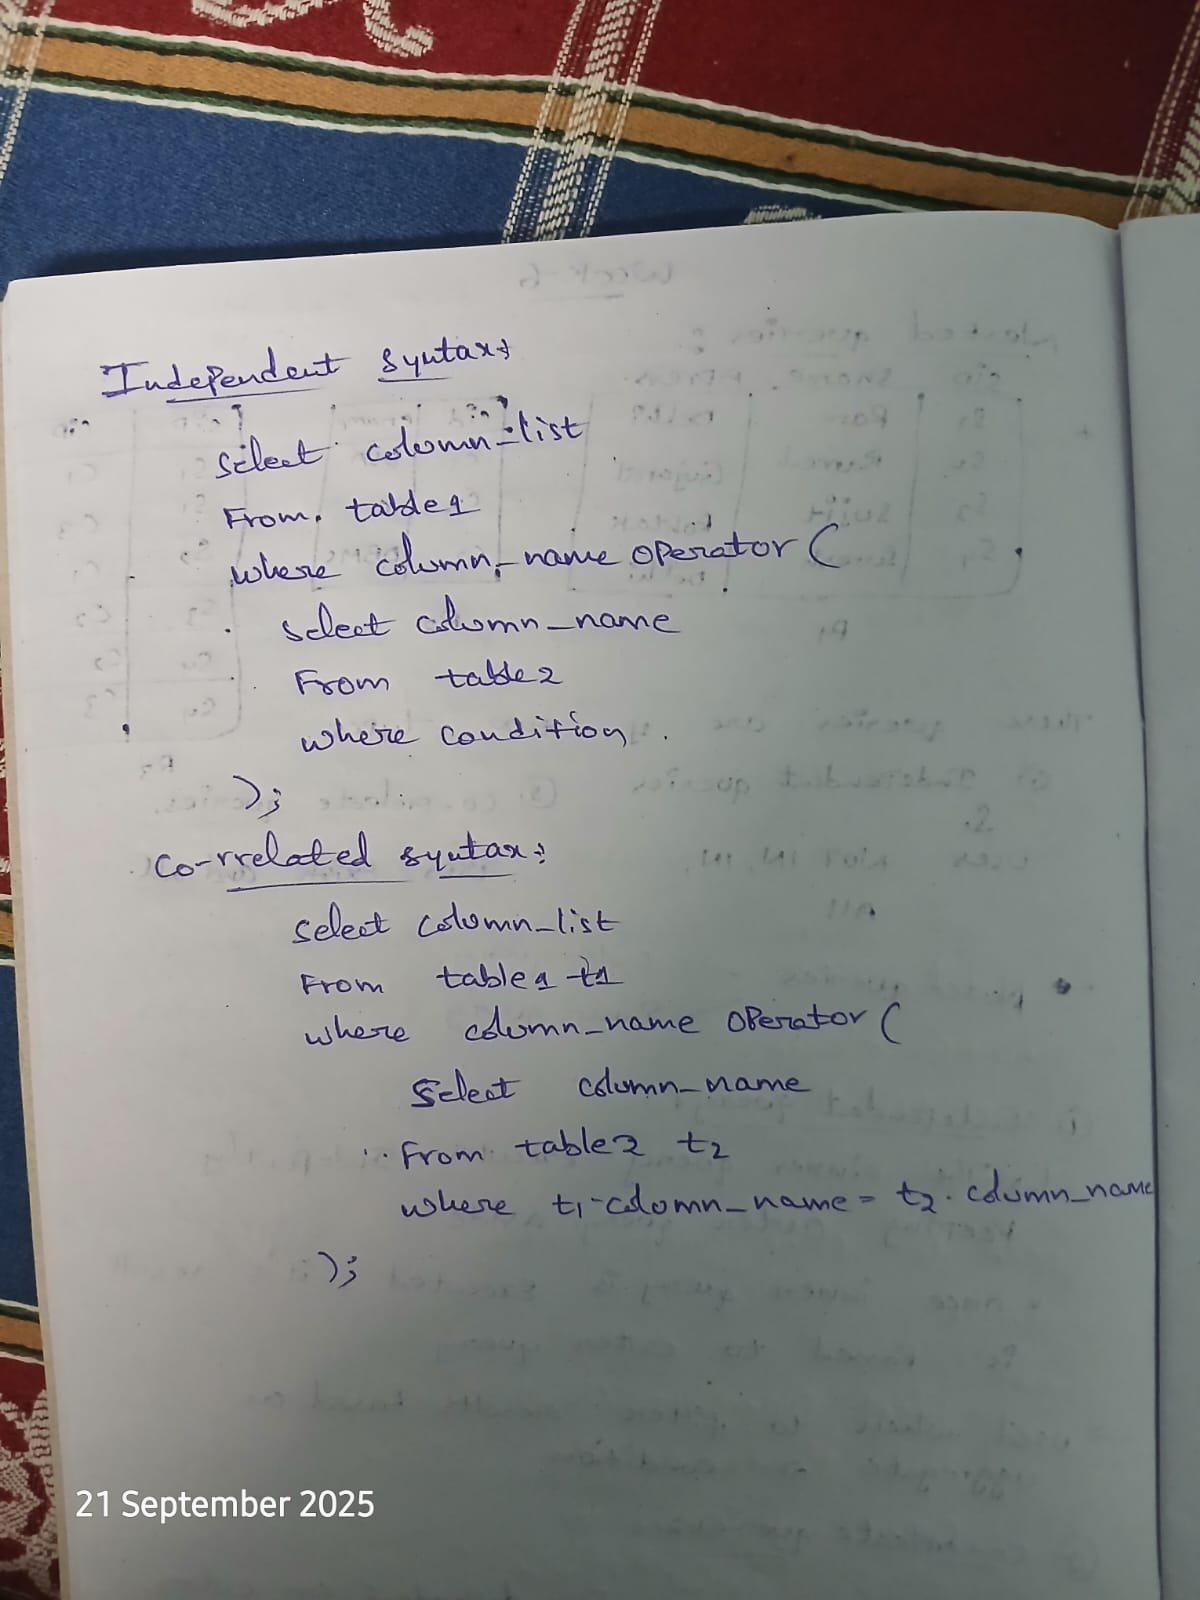 Independent syntax:
Select column-list
From table1
where column_name operator (
select column_name
From table2
where condition.
);
Co-rrelated syntax:
select column_list
From table1 t1
where column_name operator (
Select column_name
From table2 t2
where t1.column_name = t2.column_name
);
21 September 2025